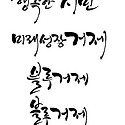 행복한 시민
미래성장 거제
블루거제
블루거제